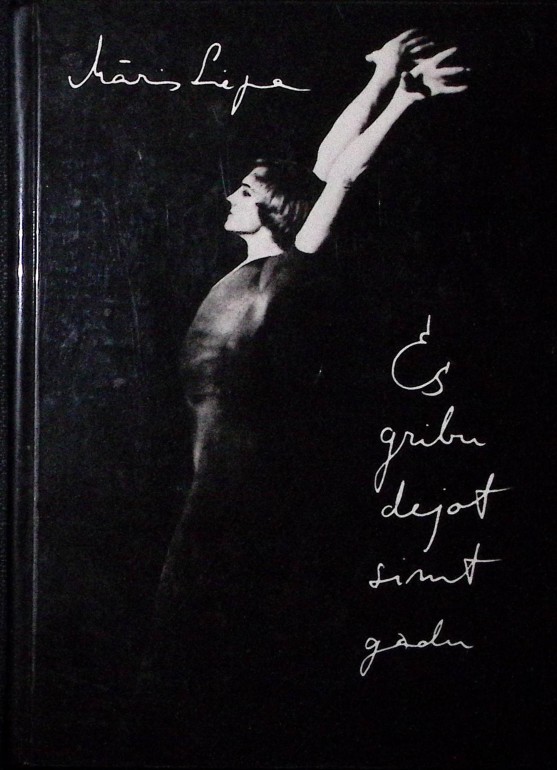 Māris Liepa
Es
gribu
dejot
simt
gadu